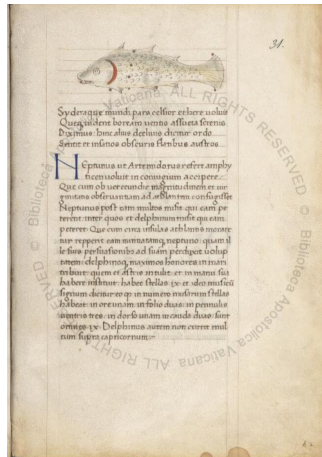 31.
Syderaque mundi pars celsior ethere voluit
Queq vident boream ventis assueta serenis
Diximus hinc alius declivis dicitur ordo
Sentit et insanos obscuris flatibus austros
Neptunus ut Artemidorus refert amphy
tricen voluit in coniugium accipere
Que cum ob verecundie magnitudinem et vir
ginitatis observantiam ad athlantem confugisset
Neptunus post eam multos misit qui eam pe
terent inter quos et delphinum misit qui eam
peteret Que cum circa insulas athlantis morare
tur repperit eam
neptuno quam il
le suis persuasionibus ad suam perduxit volup
tatem delphinoq maximos honores in mari
tribuit quem et astris intulit et in manu sua
habere instituit habet stellas ix et ideo musicu
signum dicitur eo qp in numero musarum stellas
habeat in ore unam in folio duas in pennulis
ventris tres in dorso unam in cauda duas sunt
omnes ix Delphinus autem non currit mul
tum supra capricornum
Biblioteca Apostolica Vaticana ALL RIGHTS RESERVED ©